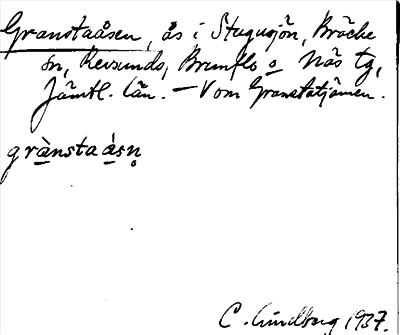 Granstaåsen, ås i Stugusjön, Bräcke
sn, Revsunds, Brunflo o Näs tg,
Jämtl. län. – V om Granstatjärnen.
grànstaåsn̥
C. Lindberg 1937.